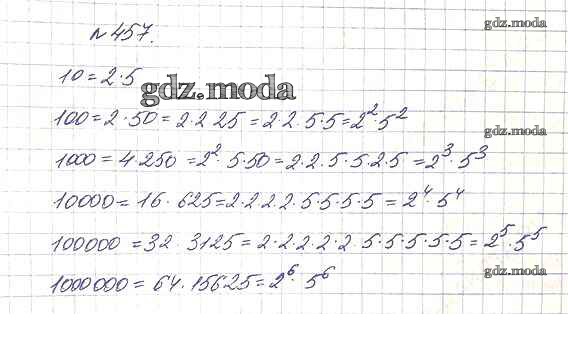 №457.
gdz.moda
10 = 2·5
gdz.moda
100 = 2·50 = 2·2 25 = 2·2·5·5 = 2²·5²
gdz.moda
1000 = 4·250 = 2²·5·50 = 2·2·5·5·2·5 = 2³·5³
10000 = 16·625 = 2·2·2·2·5·5·5·5 = 2⁴·5⁴
100000 = 32 3125 = 2·2·2·2·2 5·5·5·5·5 = 2⁵·5⁵
gdz.moda
1000000 = 64·15625 = 2⁶·5⁶